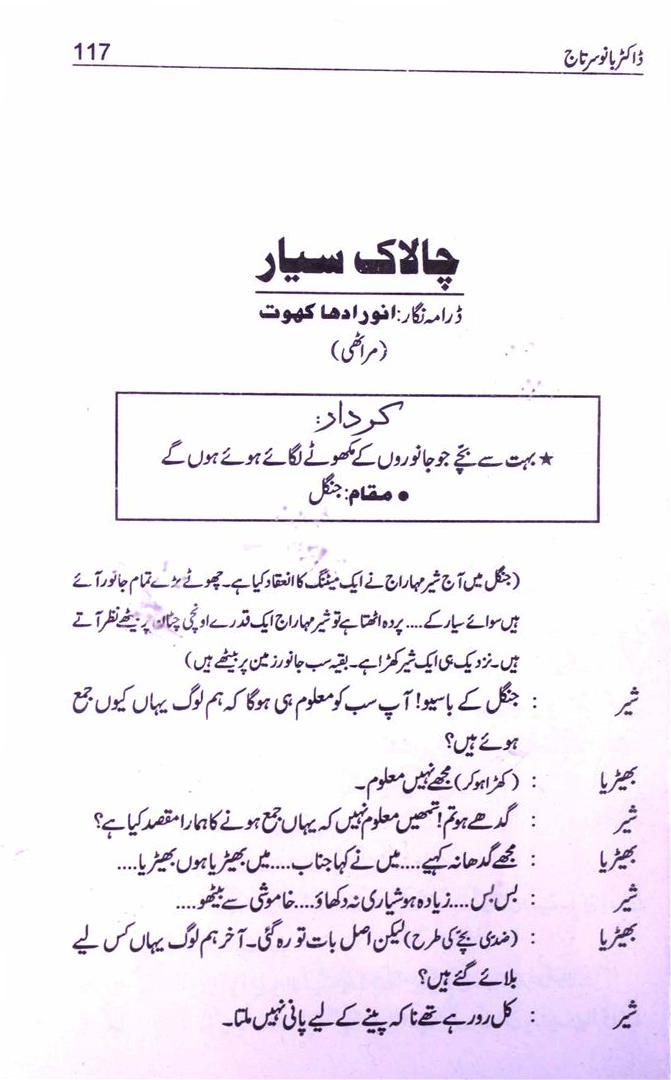 117 ڈاکٹر بانو سرتاج
چالاک سیار
ڈرامہ نگار: انورادھا کھوت
(مراٹھی)
کردار:
★ بہت سے بچّے جو جانوروں کے مکھوٹے لگائے ہوئے ہوں گے
● مقام: جنگل
(جنگل میں آج شیر مہاراج نے ایک میٹنگ کا انعقاد کیا ہے۔ چھوٹے بڑے تمام جانور آئے
ہیں سوائے سیار کے.... پردہ اٹھتا ہے تو شیر مہاراج ایک قدرے اونچی چٹان پر بیٹھے نظر آتے
ہیں۔ نزدیک ہی ایک شیر کھڑا ہے۔ بقیہ سب جانور زمین پر بیٹھے ہیں)
شیر : جنگل کے باسیو! آپ سب کو معلوم ہی ہوگا کہ ہم لوگ یہاں کیوں جمع
ہوئے ہیں؟
بھیڑیا : (کھڑا ہوکر) مجھے نہیں معلوم۔
شیر : گدھے ہو تم! تمھیں معلوم نہیں کہ یہاں جمع ہونے کا ہمارا مقصد کیا ہے؟
بھیڑیا : مجھے گدھا نہ کہیے.... میں نے کہا جناب.... میں بھیڑیا ہوں بھیڑیا....
شیر : بس بس.... زیادہ ہوشیاری نہ دکھاؤ.... خاموشی سے بیٹھو....
بھیڑیا : (ضدی بچّے کی طرح) لیکن اصل بات تو رہ گئی۔ آخر ہم لوگ یہاں کس لیے
بلائے گئے ہیں؟
شیر : کل رو رہے تھے نا کہ پینے کے لیے پانی نہیں ملتا۔